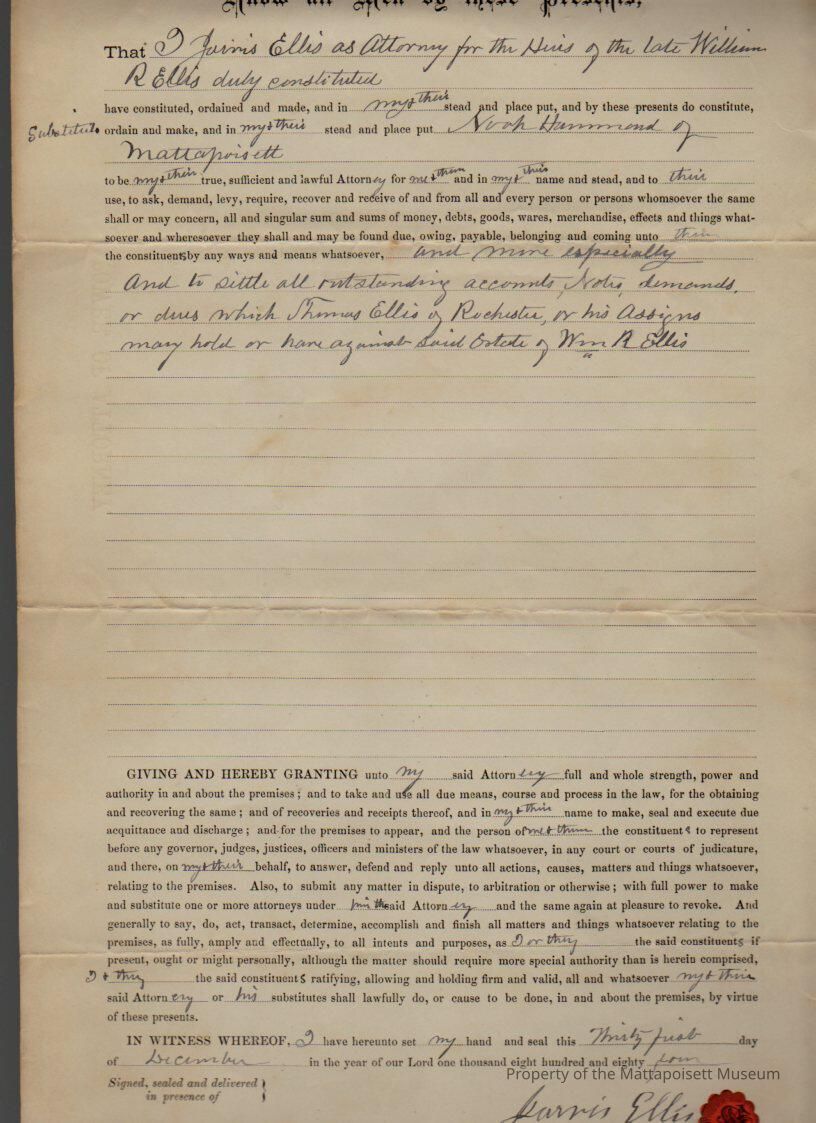 Know all Men by these Presents,
That I Jarvis Ellis as Attorney for the Heirs of the late William
R Ellis duly constituted
have constituted, ordained and made, and in my & their stead and place put, and by these presents do constitute,
Substitute ordain and make, and in my & their stead and place put Noah Hammond of
Mattapoisett
to be my & their true, sufficient and lawful Attorney for me & them and in my & their name and stead, and to their
use, to ask, demand, levy, require, recover and receive of and from all and every person or persons whomsoever the same
shall or may concern, all and singular sum and sums of money, debts, goods, wares, merchandise, effects and things what-
soever and wheresoever they shall and may be found due, owing, payable, belonging and coming unto them
the constituents by any ways and means whatsoever, and more especially
And to settle all outstanding accounts, Notes, demands,
or dues which Thomas Ellis of Rochester, or his Assigns
may hold or have against said Estate of Wm R Ellis
GIVING AND HEREBY GRANTING unto my said Attorn ey full and whole strength, power and
authority in and about the premises; and to take and use all due means, course and process in the law, for the obtaining
and recovering the same; and of recoveries and receipts thereof, and in my & their name to make, seal and execute due
acquittance and discharge; and for the premises to appear, and the person of me & them the constituents to represent
before any governor, judges, justices, officers and ministers of the law whatsoever, in any court or courts of judicature,
and there, on my & their behalf, to answer, defend and reply unto all actions, causes, matters and things whatsoever,
relating to the premises. Also, to submit any matter in dispute, to arbitration or otherwise; with full power to make
and substitute one or more attorneys under said Attorn ey and the same again at pleasure to revoke. And
generally to say, do, act, transact, determine, accomplish and finish all matters and things whatsoever relating to the
premises, as fully, amply and effectually, to all intents and purposes, as I or they the said constituents if
present, ought or might personally, although the matter should require more special authority than is herein comprised,
I & they the said constituents ratifying, allowing and holding firm and valid, all and whatsoever my & their
said Attorn ey or his substitutes shall lawfully do, or cause to be done, in and about the premises, by virtue
of these presents.
IN WITNESS WHEREOF, I have hereunto set my hand and seal this Thirty first day
of December in the year of our Lord one thousand eight hundred and eighty four
Property of the Mattapoisett Museum
Signed, sealed and delivered
in presence of
Jarvis Ellis